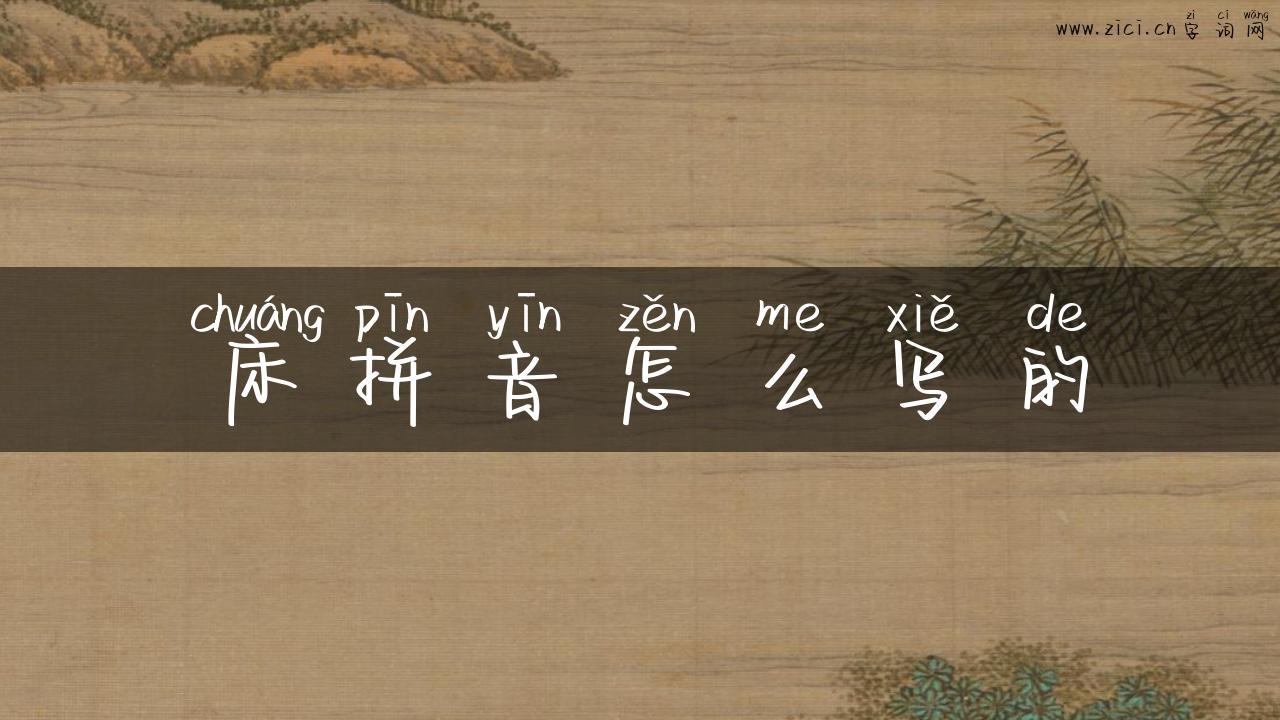 zì cí wǎng
www.zici.cn字词网
chuáng pīn yīn zěn me xiě de
床拼音怎么写的